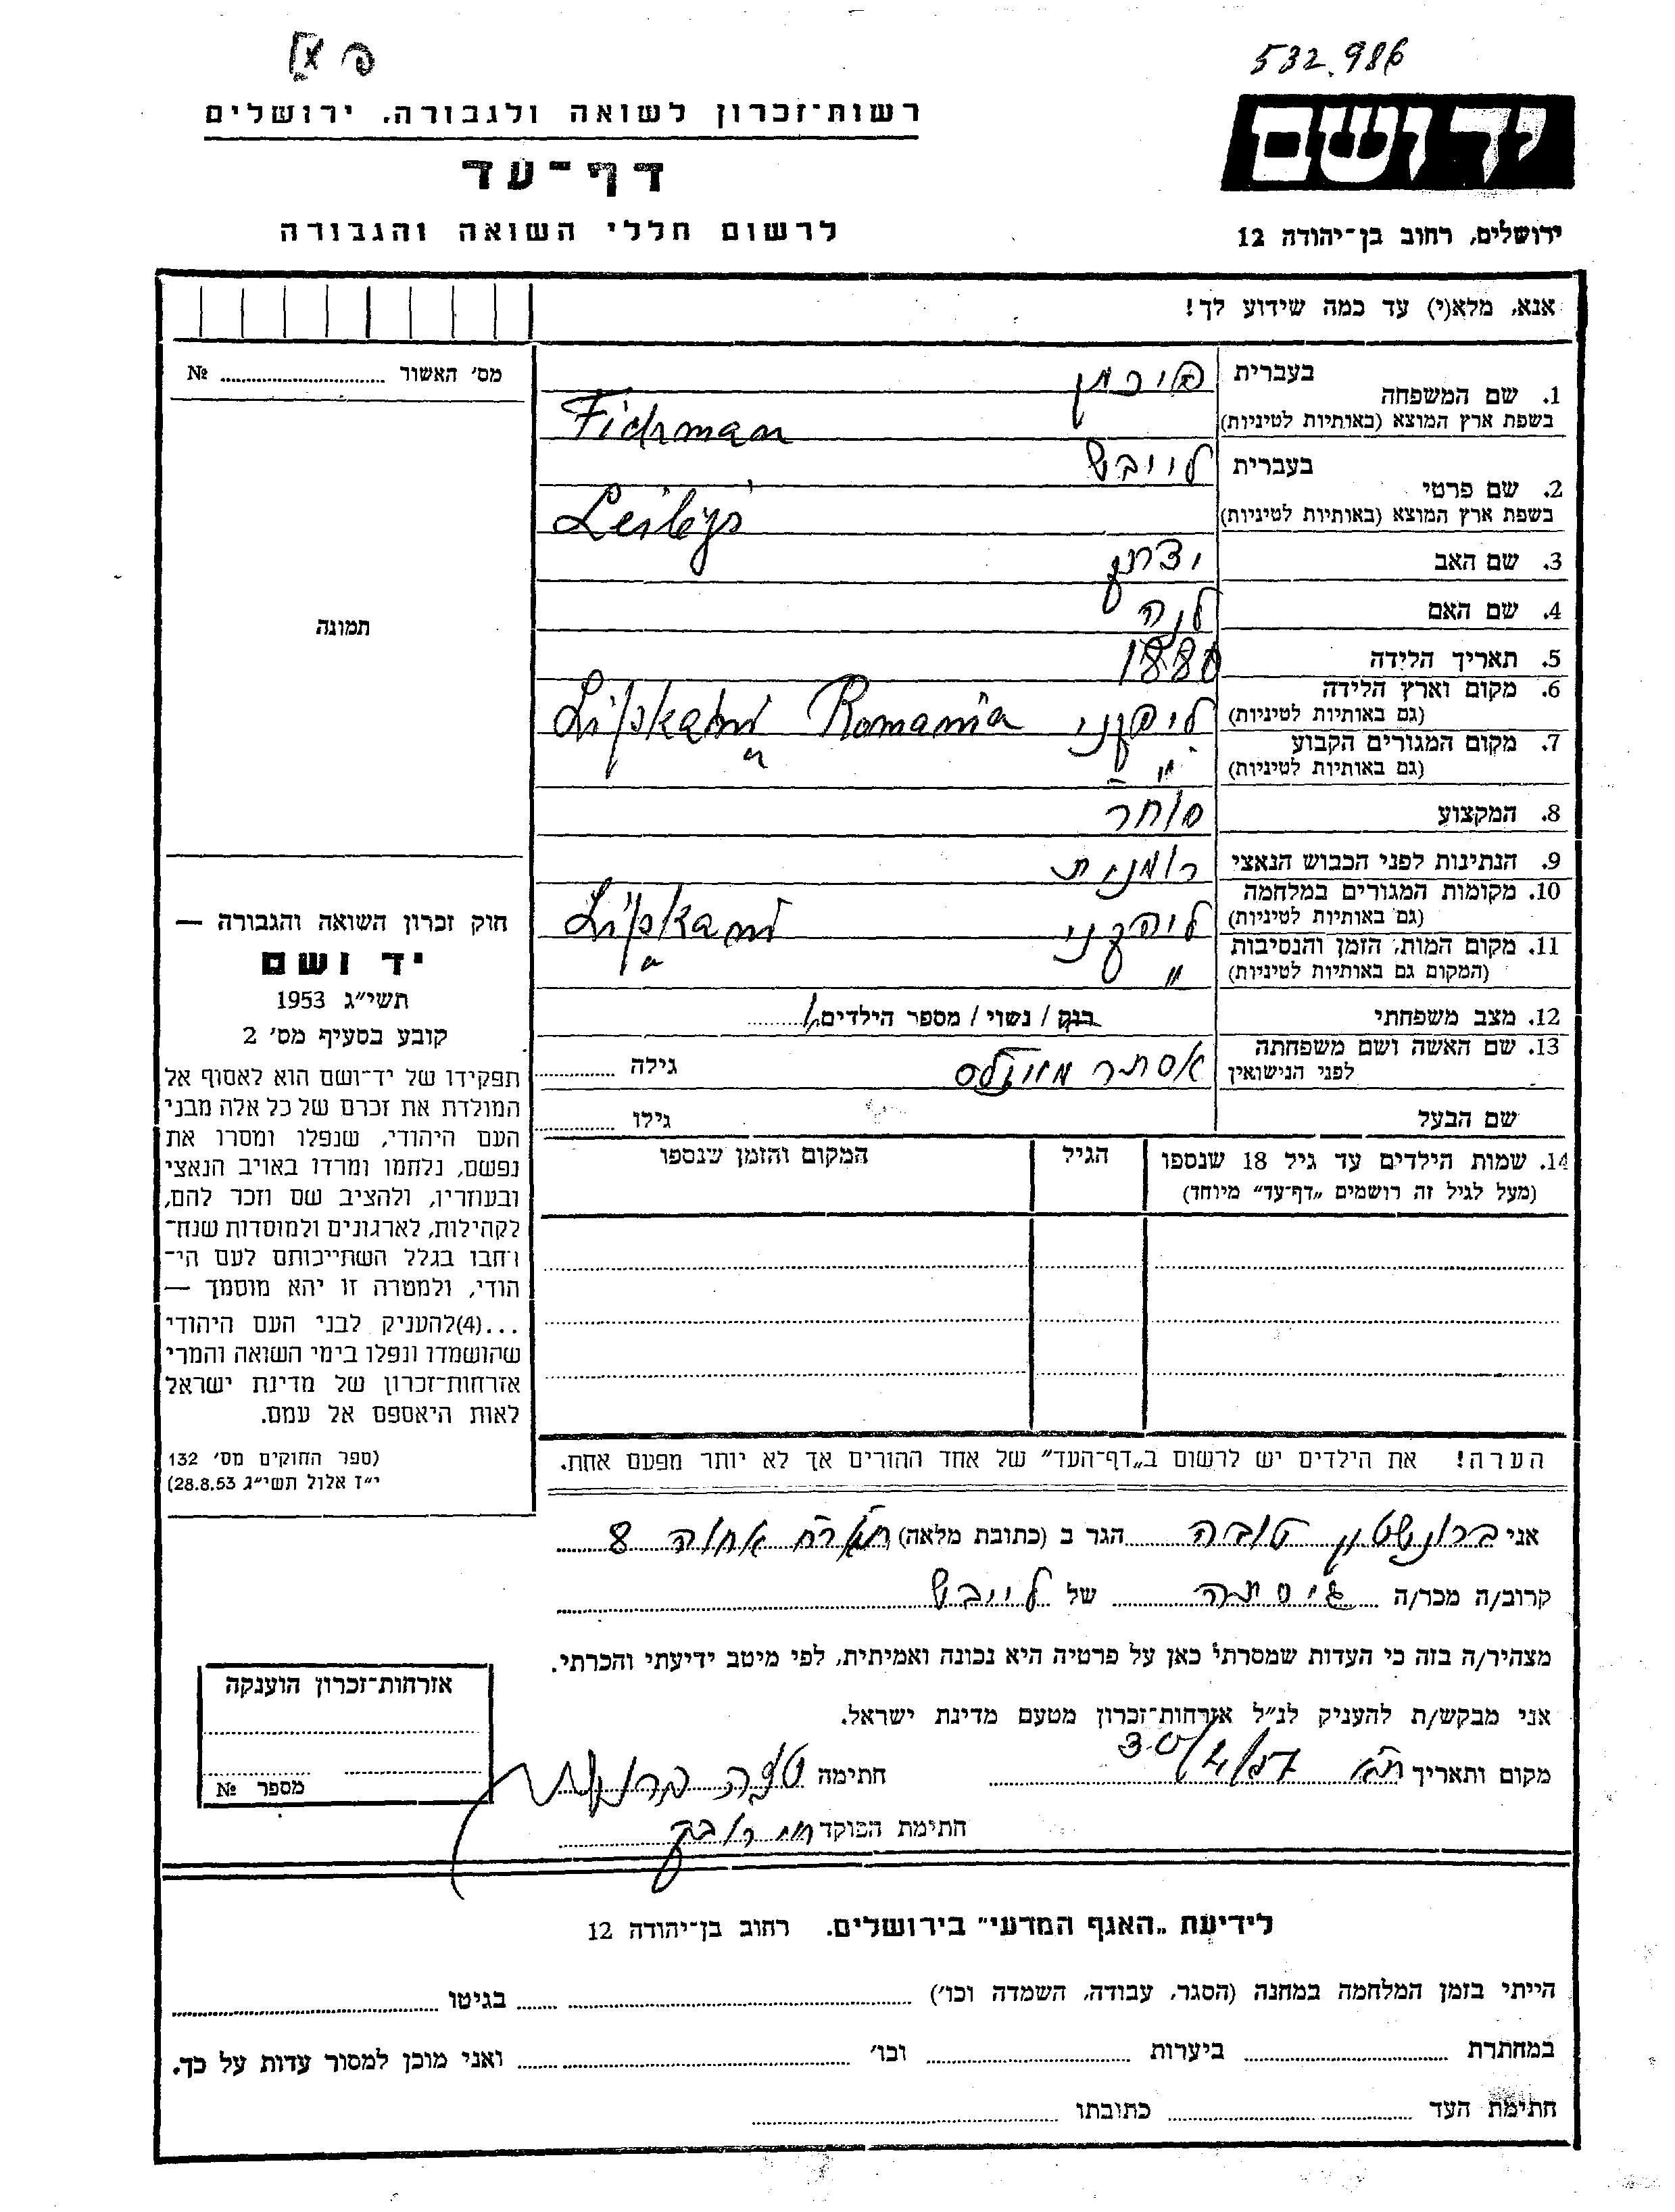 532.986
רשות־זכרון לשואה ולגבורה. ירושלים
יד ושם
דף־עד
לרשום חללי השואה והגבורה
ירושלים, רחוב בן־יהודה 12
אנא, מלא(י) עד כמה שידוע לך!
מס' האשור № 
1. שם המשפחה
בעברית פיכמן
בשפת ארץ המוצא (באותיות לטיניות) Fichman
2. שם פרטי
בעברית לייבש
בשפת ארץ המוצא (באותיות לטיניות)
3. שם האב
4. שם האם
5. תאריך הלידה 1880
6. מקום וארץ הלידה
(גם באותיות לטיניות) ליפקני Romania Lipkani
7. מקום המגורים הקבוע
(גם באותיות לטיניות) "
8. המקצוע סוחר
9. הנתינות לפני הכבוש הנאצי רומנית
10. מקומות המגורים במלחמה
(גם באותיות לטיניות) ליפקני Lipkani
11. מקום המות, הזמן והנסיבות
(המקום גם באותיות לטיניות) "
12. מצב משפחתי רווק / נשוי / מספר הילדים
13. שם האשה ושם משפחתה
לפני הנישואין אסתר גילה
שם הבעל גילו
14. שמות הילדים עד גיל 18 שנספו הגיל המקום והזמן שנספו
(מעל לגיל זה רושמים „דף־עד" מיוחד)
הערה! את הילדים יש לרשום ב„דף־העד" של אחד ההורים אך לא יותר מפעם אחת.
תמונה
חוק זכרון השואה והגבורה —
יד ושם
תשי״ג 1953
קובע בסעיף מס' 2
תפקידו של יד־ושם הוא לאסוף אל
המולדת את זכרם של כל אלה מבני
העם היהודי, שנפלו ומסרו את
נפשם, נלחמו ומרדו באויב הנאצי
ובעוזריו, ולהציב שם וזכר להם,
לקהילות, לארגונים ולמוסדות שנח־
רחבו בגלל השתייכותם לעם הי־
הודי, ולמטרה זו יהא מוסמך —
...(4)להעניק לבני העם היהודי
שהושמדו ונפלו בימי השואה והמרי
אזרחות־זכרון של מדינת ישראל
לאות היאספם אל עמם.
(ספר החוקים מס' 132
י״ז אלול תשי״ג 28.8.53)
אני ברונשטין טובה הגר ב (כתובת מלאה) אחוה 8
קרוב/ה מכר/ה גיסתה של לייבש
מצהיר/ה בזה כי העדות שמסרתי כאן על פרטיה היא נכונה ואמיתית, לפי מיטב ידיעתי והכרתי.
אני מבקש/ת להעניק לנ״ל אזרחות־זכרון מטעם מדינת ישראל.
מקום ותאריך ת״א 30/4/57 חתימה טובה
חתימת הפוקד
אזרחות־זכרון הוענקה
מספר №
לידיעת „האגף המדעי" בירושלים. רחוב בן־יהודה 12
הייתי בזמן המלחמה במחנה (הסגר, עבודה, השמדה וכו') בגיטו
במחתרת ביערות וכו' ואני מוכן למסור עדות על כך.
חתימת העד כתובתו